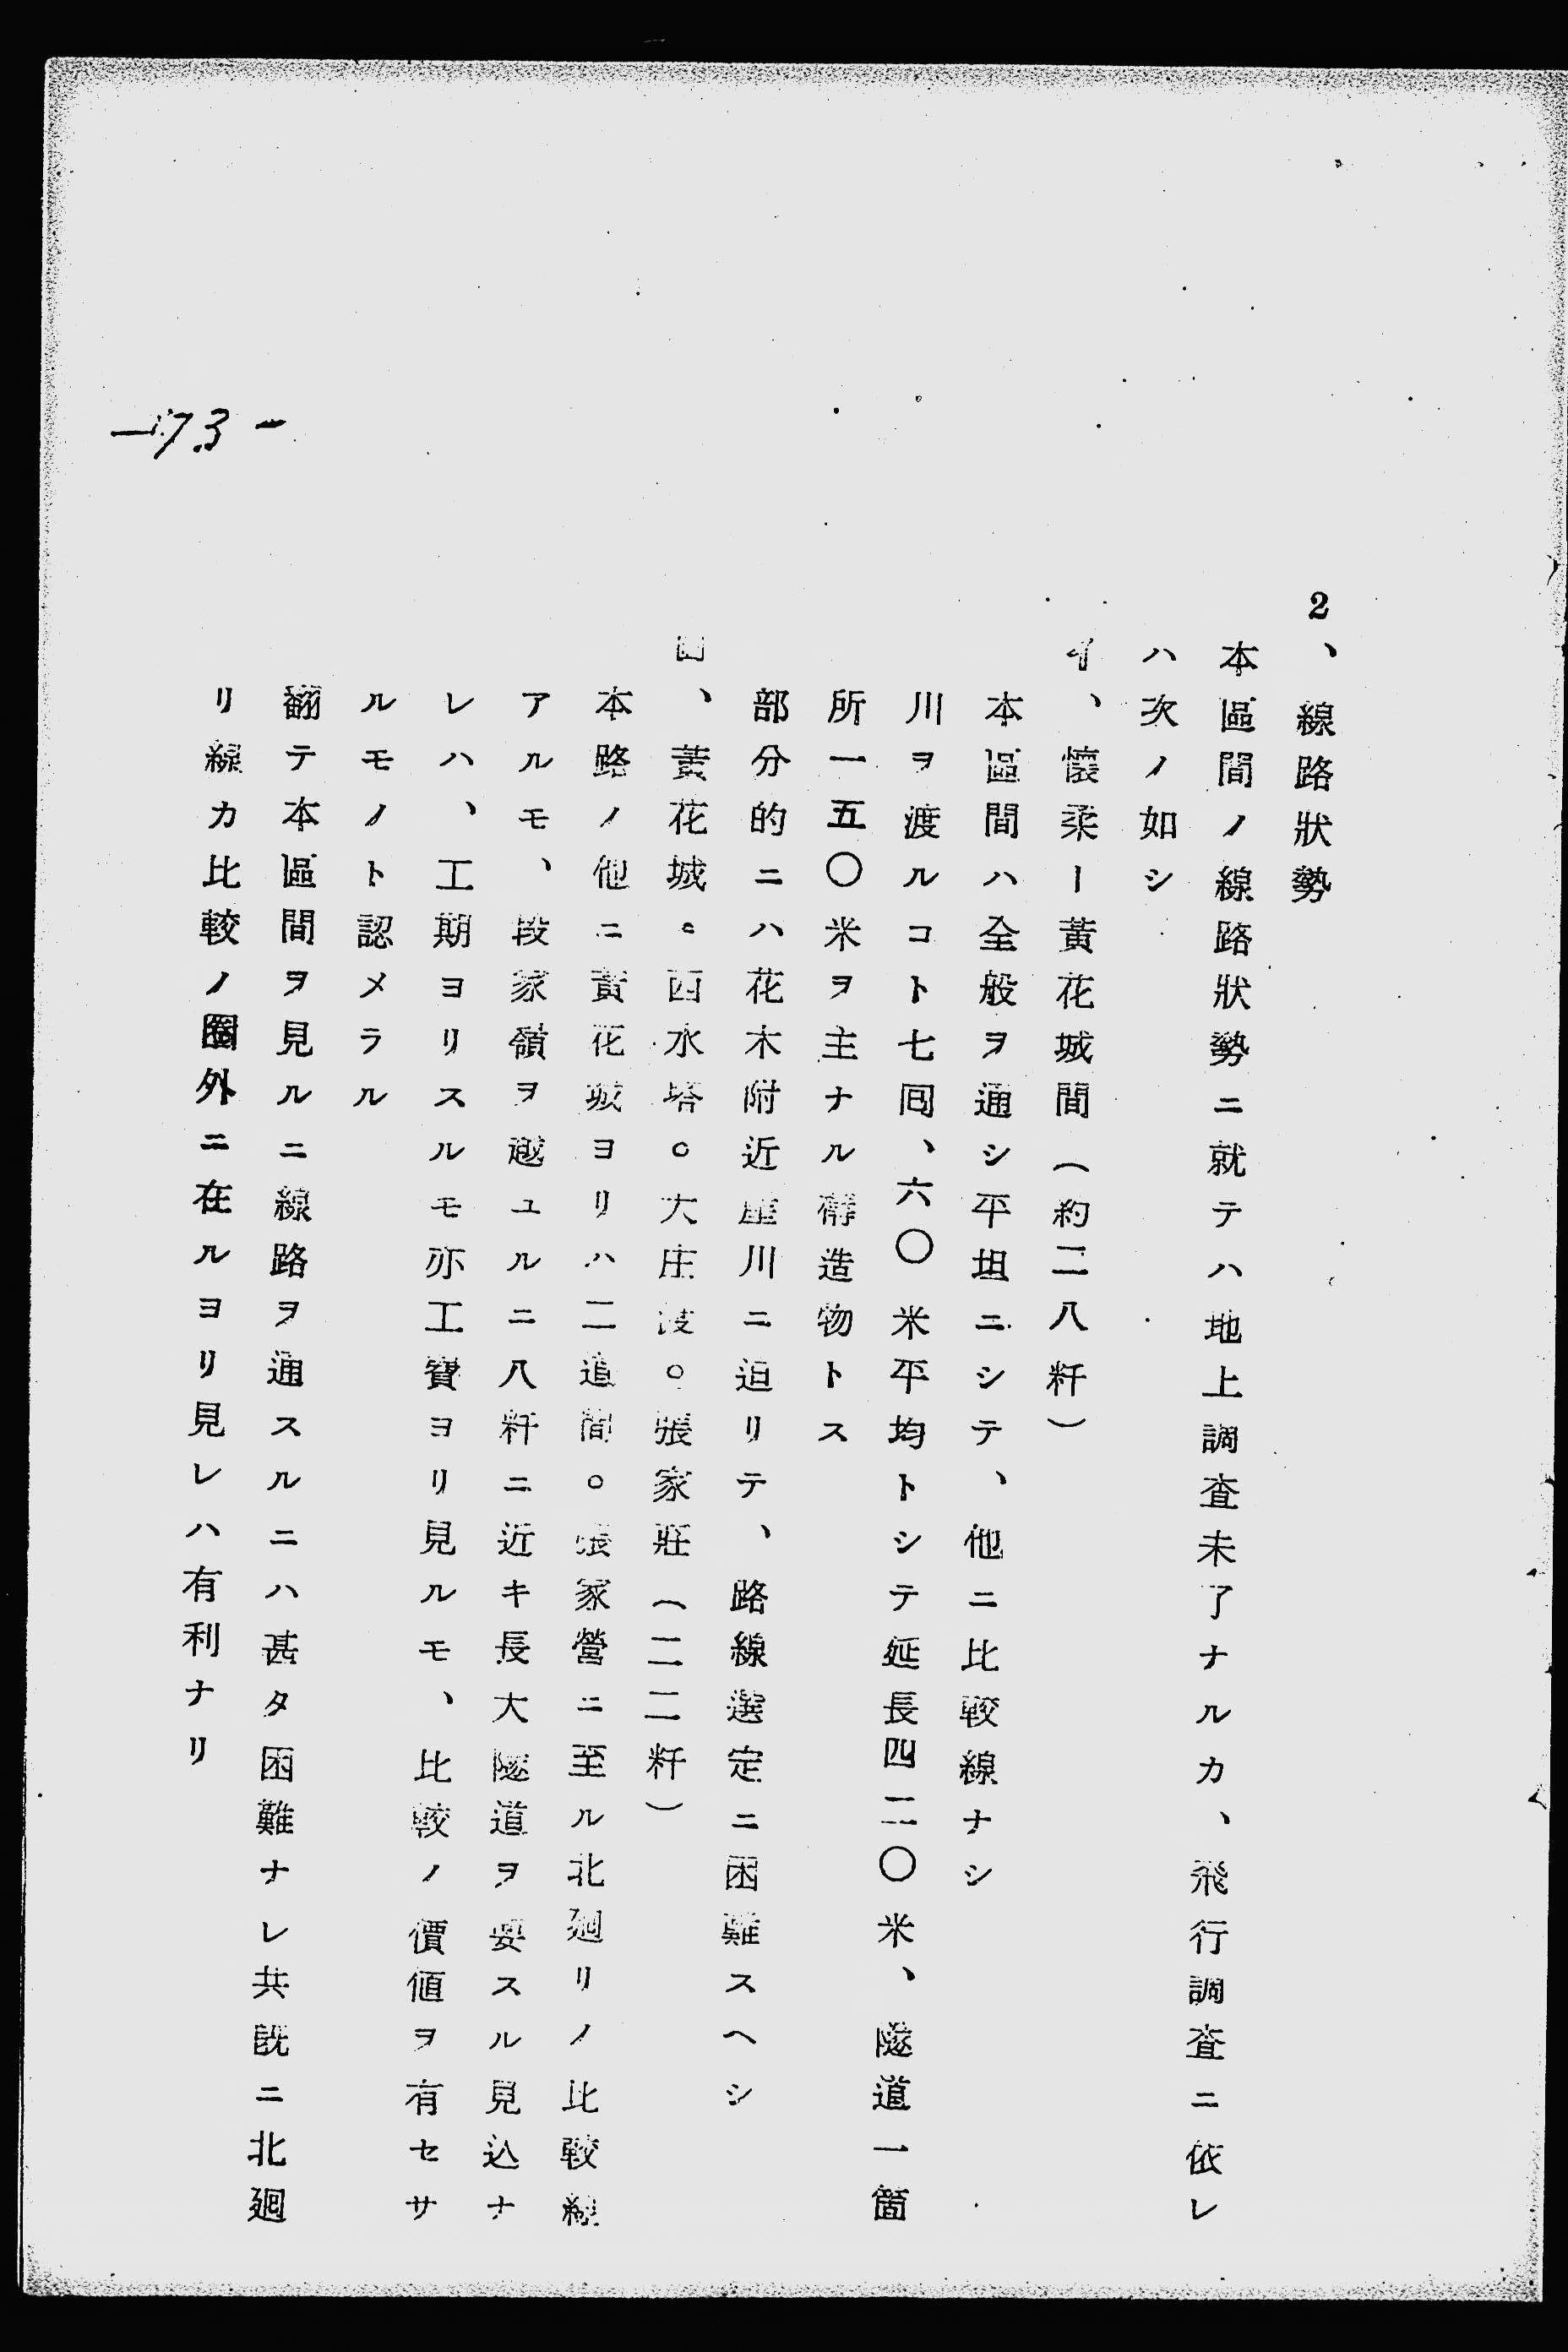 2、線路狀勢
本區間ノ線路狀勢ニ就テハ地上調査未了ナルカ、飛行調査ニ依レ
ハ次ノ如シ
イ、懷柔ー黃花城間（約二八粁）
本區間ハ全般ヲ通シ平坦ニシテ、他ニ比較線ナシ
川ヲ渡ルコト七囘、六〇米平均トシテ延長四二〇米、隧道一箇
所一五〇米ヲ主ナル構造物トス
部分的ニハ花木附近川ニ迫リテ、路線選定ニ困難スヘシ
、黃花城。西水塔。大庄。張家莊（二二粁）
本路ノ他ニ黃花城ヨリハ二道間。張家營ニ至ル北廻リノ比較線
アルモ、段家嶺ヲ越ユルニ八粁ニ近キ長大隧道ヲ要スル見込ナ
レハ、工期ヨリスルモ亦工費ヨリ見ルモ、比較ノ價値ヲ有セサ
ルモノト認メラル
翻テ本區間ヲ見ルニ線路ヲ通スルニハ甚タ困難ナレ共既ニ北廻
リ線カ比較ノ圈外ニ在ルヨリ見レハ有利ナリ
—173-